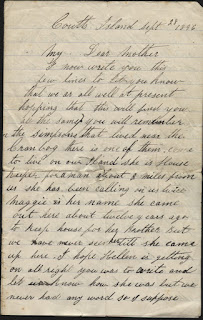 Coutts Island Sept 23 1896
My Dear Mother
I now write you this
few lines to let you know
that we ar all well at present
hopping that this will find you
all the same you will remember
the simpsons that lived near the
here is one of them come
to live on our Island she is House
keeper for a man about 3 miles from
us she has been calling in us twice
Maggie is her name she came
out here about twelve years ago
to keep house for her brother but
we never seen till she came
up here I hope Hellen is getting
on all right you was to write and
let know how she was but we
never had any word so I suppose